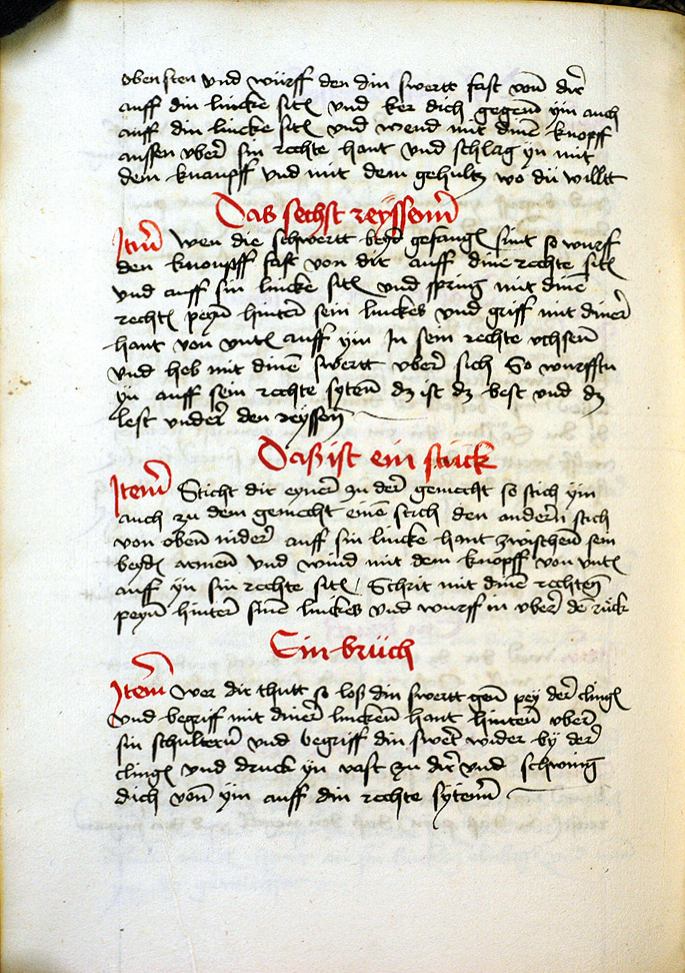 obensten vnd würff den din swertt fast von dir
auff din lincke sitñ vnd ker dich gegen yin auch
auff din lincke sitñ vnd wend mit dinē knopff
aussen vber sin rechte hant vnd schlag yn mit
dem knaupff vnd mit dem gehultz wo dü willtt
Das sechst reyssenn
Itm̄ wen die schwertt beyd gefangñ sint so wurf
den knoupff fast von dir auff dine rechte sitñ
vnd auff sin lincke sitñ vnd spring mit dinē
rechtñ peyn hinter sein linckes vnd griff mit diner
hant von vntñ auff yin In sein rechte vchsenn
vnd heb mit dinē swertt vber sich So wurffstu
yn auff sein rechte sytenn dz ist dz best vnd dz
lest vnder den reyssen
Daß ist ein stück
Itenn Sticht dir eyner zu der gemecht so stich yin
auch zu dem gemecht einē stich den andern stich
von oben nider auff sin lincke hant zwischen sein
beydñ armen vnd wind mit dem knopff von vntñ
auff yn sin rechte sitñ / Schrit mit dinē rechten
peyn hinter sinē linckes vnd wurff in vber dē rück
Ein brüch
Item Wer dir thutt so loß din swertt gen pey der clingñ
vnd begriff mit diner lincken hant hinten vber
sin schultern vnd begriff din swert wider by der
clingñ vnd druck yn vast zu dir vnd schwing
dich von yin auff din rechte sytenn